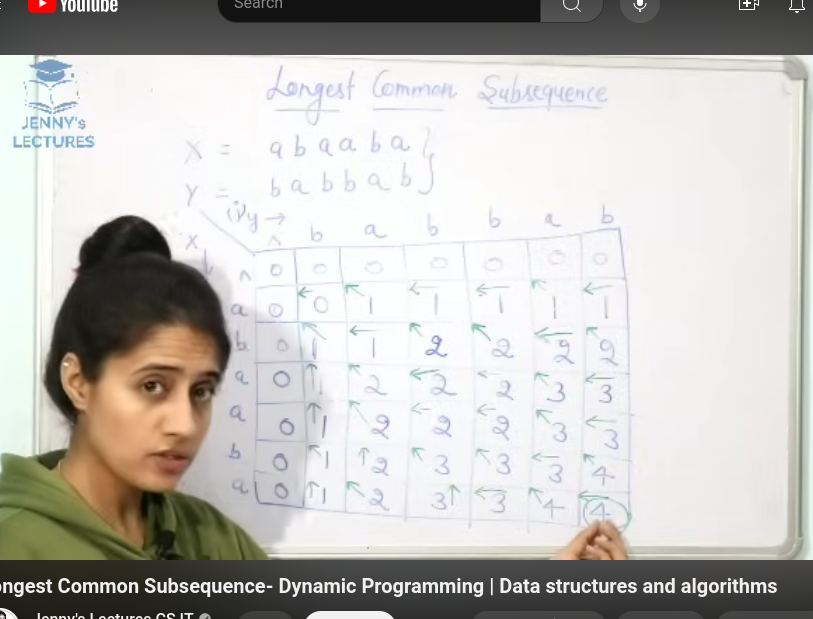 YouTube
Search
JENNY's
LECTURES
Longest Common Subsequence
X = a b a a b a }
Y = b a b b a b }
y →
x ^ b a b b a b
^ 0 0 0 0 0 0 0
a 0 0 1 1 1 1 1
b 0 1 1 2 2 2 2
a 0 1 2 2 2 3 3
a 0 1 2 2 2 3 3
b 0 1 2 3 3 3 4
a 0 1 2 3 3 4 4
ongest Common Subsequence- Dynamic Programming | Data structures and algorithms
Jenny's Lectures CS IT